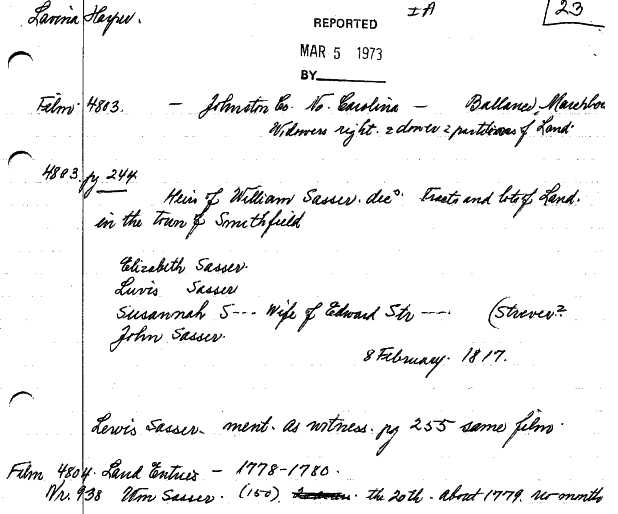 Lavina Harper.
IA
23
REPORTED
MAR 5 1973
BY
Film 4803. — Johnston Co. No. Carolina —
Widowers right. & dower & partitions of Land.
4803. pg 244
Heirs of William Sasser. decd. Tracts and lots of Land.
in the town of Smithfield
Elizabeth Sasser.
Luvis Sasser
Susannah S--- Wife of Edward Str ---- (Strever?
John Sasser.
8 February. 1817.
Lewis Sasser. ment. as witness. pg 255 same film.
Film 4804. Land Entries - 1778-1780.
Nr. 938 Wm Sasser. (150) the 20th. about 1779. no month